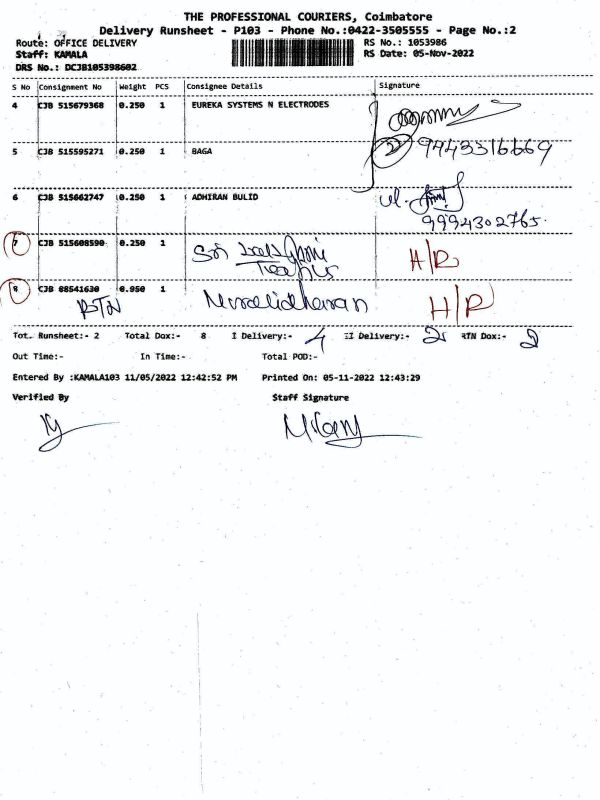 THE PROFESSIONAL COURIERS, Coimbatore
Delivery Runsheet - P103 - Phone No.:0422-3505555 - Page No.:2
Route: OFFICE DELIVERY RS No.: 1053986
Staff: KAMALA RS Date: 05-Nov-2022
DRS No.: DCJB105398602
S No Consignment No Weight PCS Consignee Details Signature
4 CJB 515679368 0.250 1 EUREKA SYSTEMS N ELECTRODES
5 CJB 515595271 0.250 1 BAGA 2 9443316669
6 CJB 515662747 0.250 1 ADHIRAN BULID
9994302765
7 CJB 515608590 0.250 1 Sri H/R
8 CJB 88541630 0.950 1 Muralidharan H/R
RTN
Tot. Runsheet:- 2 Total Dox:- 8 I Delivery:- 4 II Delivery:- 2 RTN Dox:- 2
Out Time:- In Time:- Total POD:-
Entered By :KAMALA103 11/05/2022 12:42:52 PM Printed On: 05-11-2022 12:43:29
Verified By Staff Signature